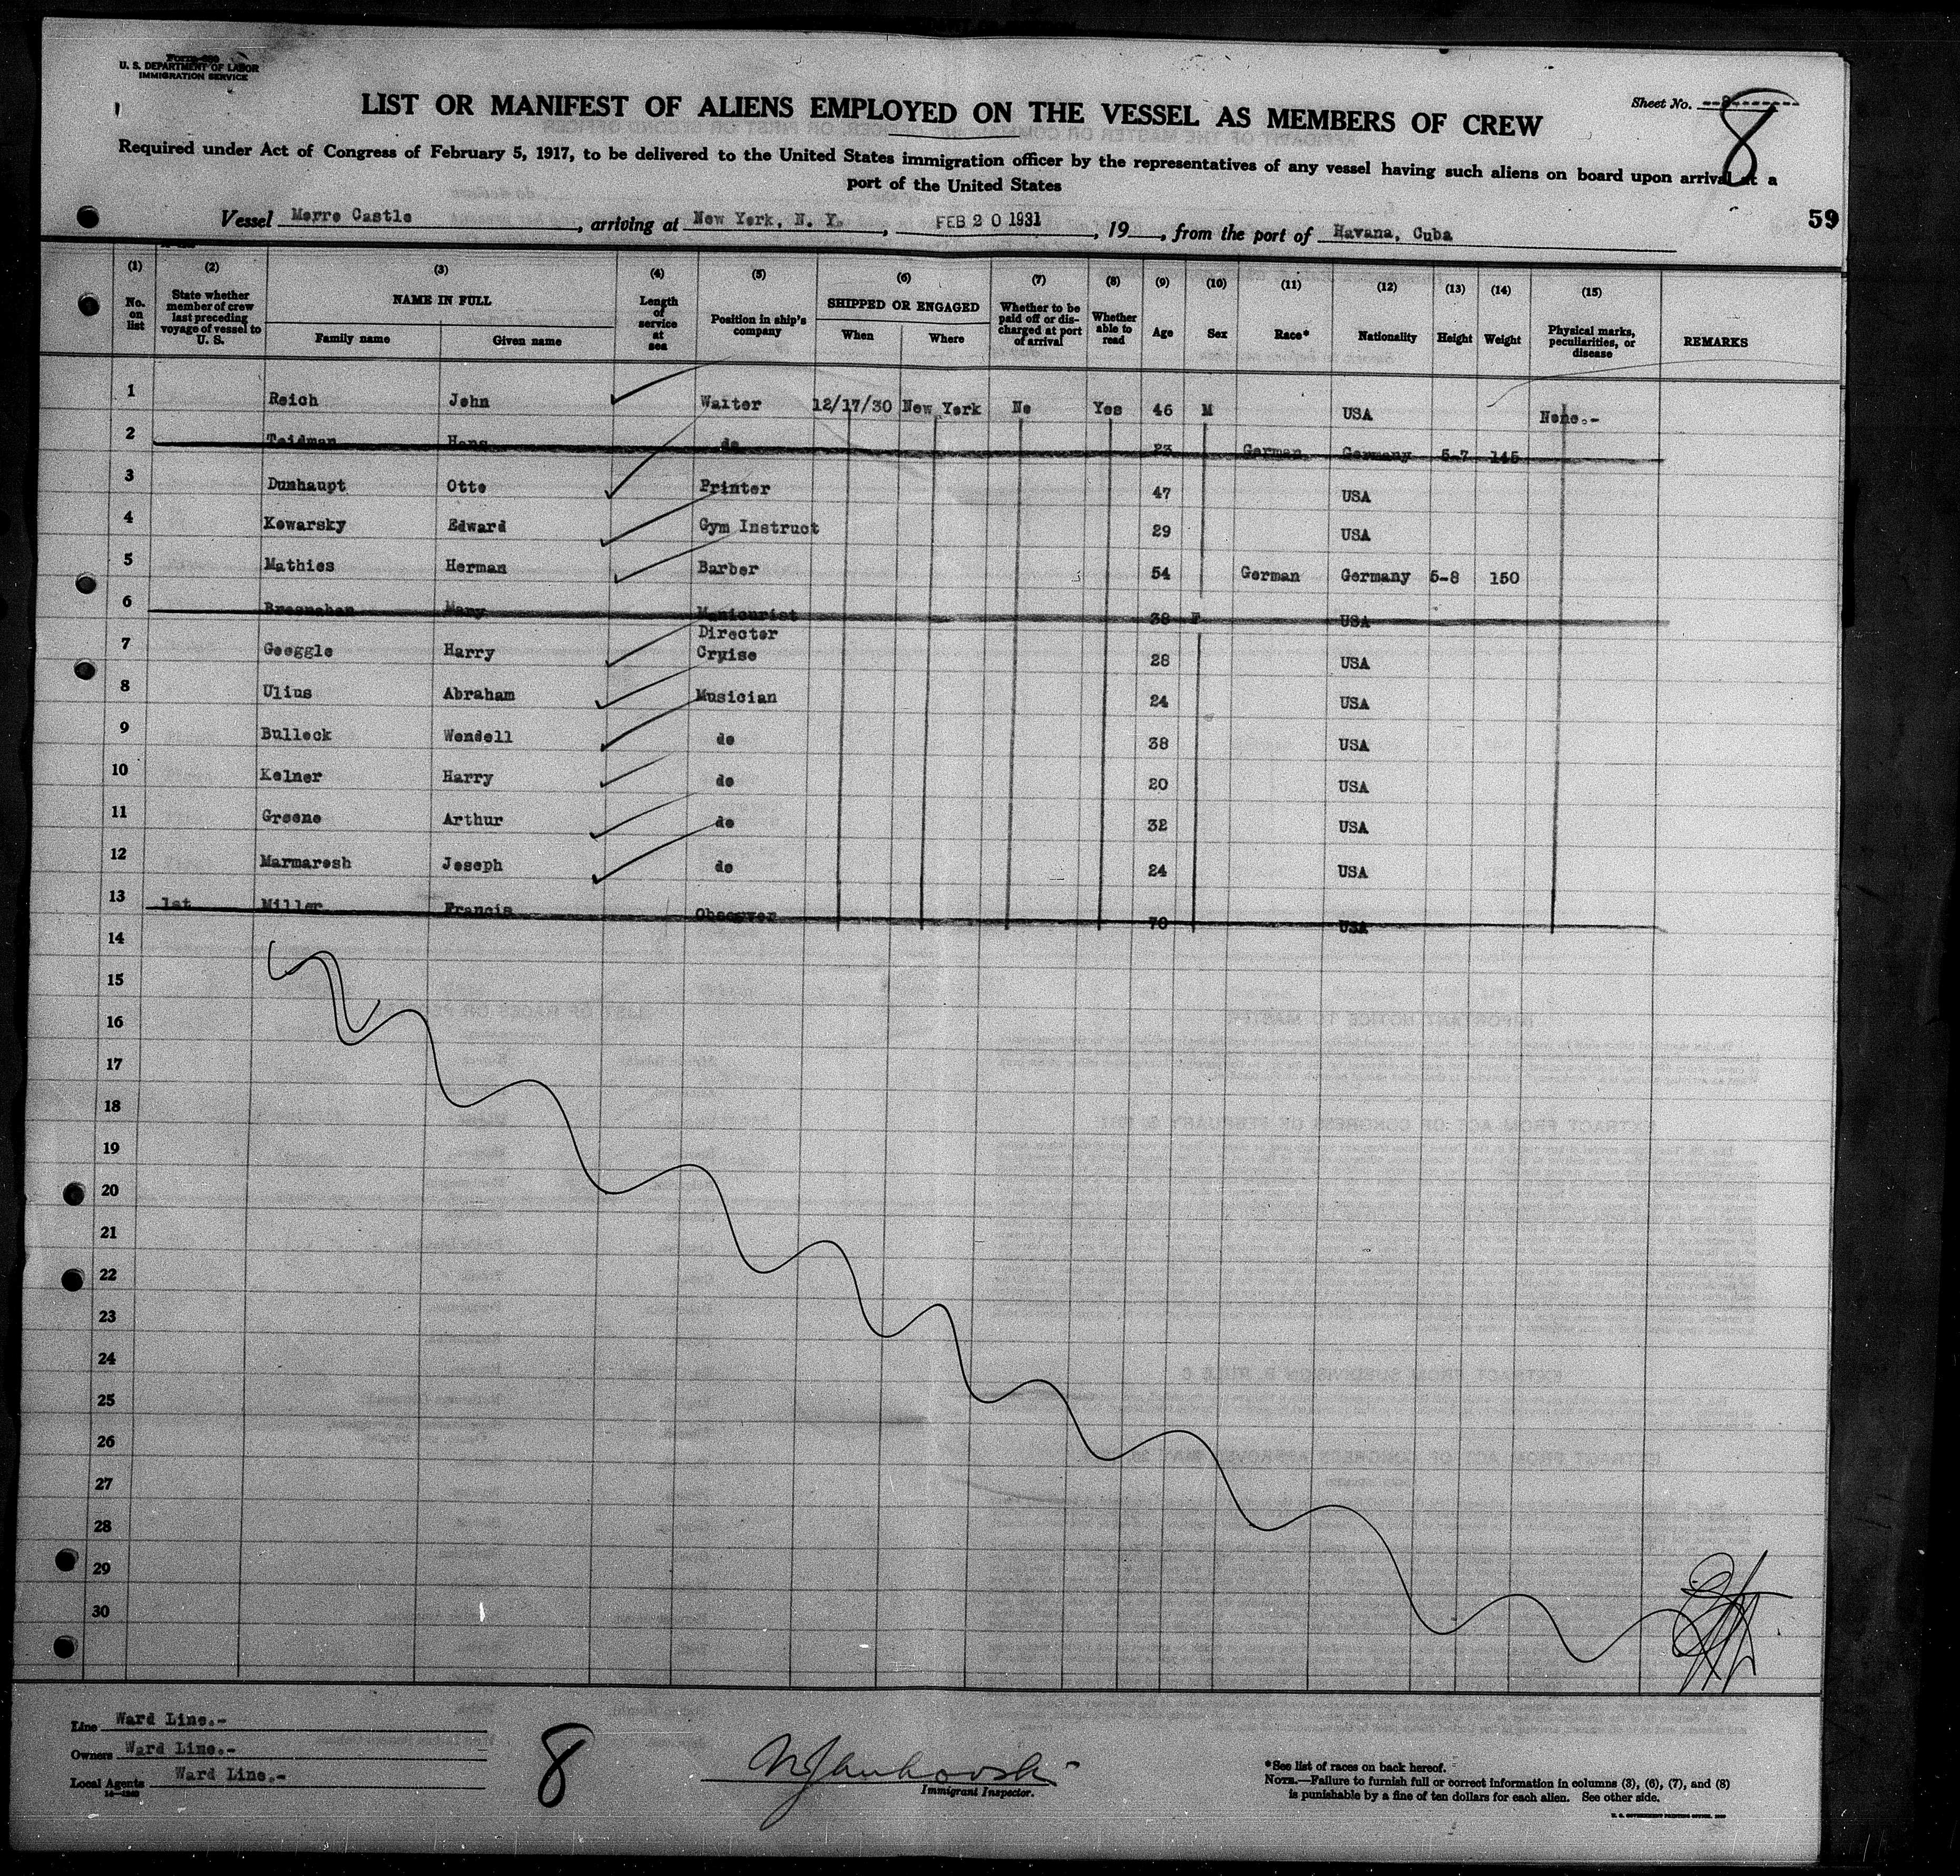 U. S. DEPARTMENT OF LABOR
IMMIGRATION SERVICE
Sheet No. 8
8
LIST OR MANIFEST OF ALIENS EMPLOYED ON THE VESSEL AS MEMBERS OF CREW
Required under Act of Congress of February 5, 1917, to be delivered to the United States immigration officer by the representatives of any vessel having such aliens on board upon arrival at a
port of the United States
59
Vessel Morro Castle, arriving at New York, N. Y., FEB 20 1931, 19__, from the port of Havana, Cuba
(1) (2) (3) (4) (5) (6) (7) (8) (9) (10) (11) (12) (13) (14) (15)
No. on list State whether member of crew last preceding voyage of vessel to U. S. NAME IN FULL Family name Given name Length of service at sea Position in ship's company SHIPPED OR ENGAGED When Where Whether to be paid off or discharged at port of arrival Whether able to read Age Sex Race* Nationality Height Weight Physical marks, peculiarities, or disease REMARKS
1 Reich John Waiter 12/17/30 New York No Yes 46 M USA None.-
2 Teidman Hans do 23 German Germany 5-7 145
3 Dumhaupt Otto Printer 47 USA
4 Kowarsky Edward Gym Instruct 29 USA
5 Mathies Herman Barber 54 German Germany 5-8 150
6 Bresnahan Mary Manicurist 38 F USA
Director
7 Goeggle Harry Cruise 28 USA
8 Ulius Abraham Musician 24 USA
9 Bullock Wendell do 38 USA
10 Kolner Harry do 20 USA
11 Greene Arthur do 32 USA
12 Marmarosh Joseph do 24 USA
13 1st Miller Francis Observer 70 USA
14
15
16
17
18
19
20
21
22
23
24
25
26
27
28
29
30
Line Ward Line.-
Owners Ward Line.-
Local Agents Ward Line.-
8
Immigrant Inspector.
*See list of races on back hereof.
NOTE.—Failure to furnish full or correct information in columns (3), (6), (7), and (8)
is punishable by a fine of ten dollars for each alien. See other side.